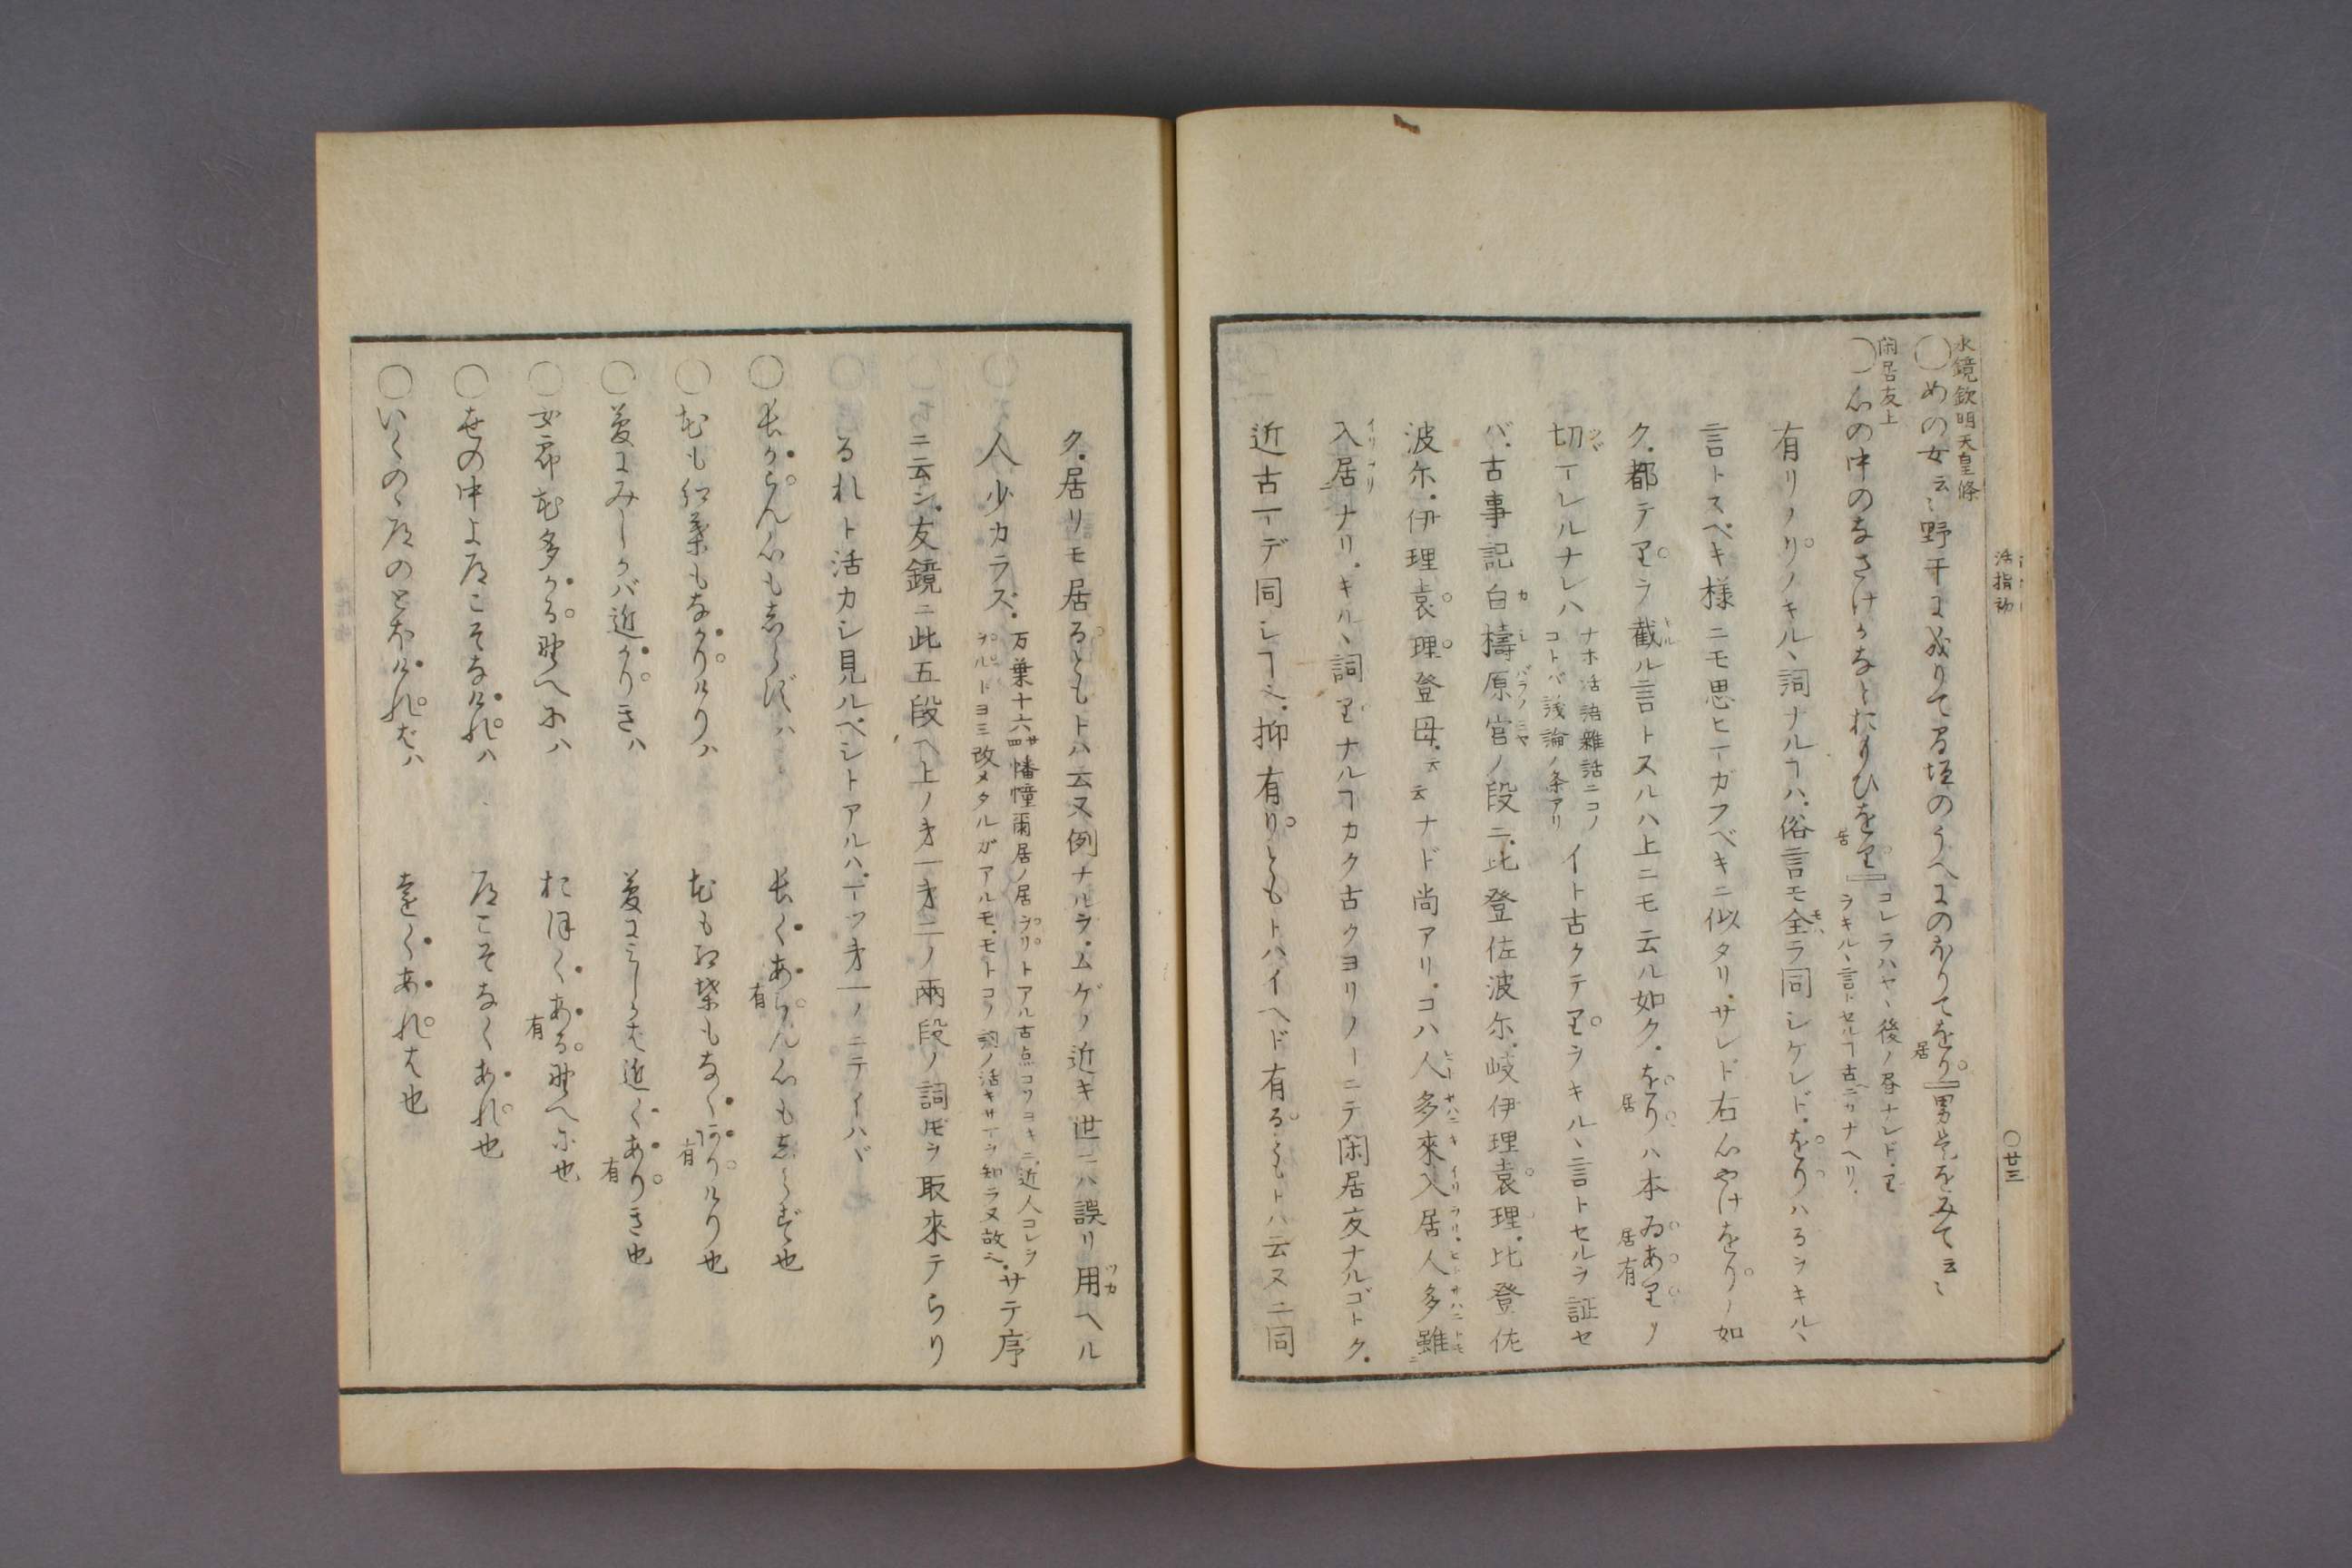 活指初
〇廿三
水鏡欽明天皇條
〇めの女云〻野干に成りてる垣のうへにのぼりてをり『男是をみて云〻
閑居友上
〇心の中のなさけかなとおりひをリ』コレラハヤヽ後ノ居ナレド、リ
ラキルヽ言トセルヿ古ニカナヘリ
有リノりノキル、詞ナルヿハ、俗言モ全ラ同シケレド、をりハるヲキル、
言トスベキ様ニモ思ヒーガフベキニ似タリ、サレド右心やけをりノ如
ク、都テリヲ截ル言トスルハ上ニモ云ル如ク、をりハ本ゐありノ
切ーレルナレハ ナホ活語雜話ニコノ
コトバ議論ノ条アリ イト古クテリヲキル、言トセルヲ証セ
バ、古事記白檮原宮ノ段ニ、比登佐波尓、岐伊理袁理、比登佐
波尓、伊理袁理登母、云云ナド尚アリ、コハ人多來入居人多雖
入居ナリ、キル、詞リナルヿカクヨリノーニテ閑居友ナルゴトク、
近古ーデ同シヿ也、抑有りともトハイヘド有るともトハ云ヌニ同
ク、居リモ居るともトハ云ヌ例ナルヲ、ムゲノ近キ世ニハ誤リ用ヘル
人少カラズ、 万葉十六 幡幢爾居ノ居ヲリトアル古点コソヨキニ、近人コレヲ
ヲルトヨミ改メタルガアルモ、モトコノ詞ノ活キサーヲ知ラヌ故也、サテ序
ニ云ン、友鏡ニ此五段ヘ上ノ才一才二ノ兩段ノ詞𪜈ヲ取來テらり
るれト活カシ見ルベシトアルハ、ーツ才一ノニテイハヾ
〇長からん心もしらずハ 長くあらん心もしらず也
〇花も紅葉もなかりけりハ 花も紅葉もなくありけり也
〇夢にみしかバ近かりきハ 夢にみしかば近くありき也
〇女郎花多かる野へにハ おほくあるのへに也
〇世の中よ道こそなけれハ 道こそなくあれ也
〇いくのゝ道のとほければハ 遠くあれば也